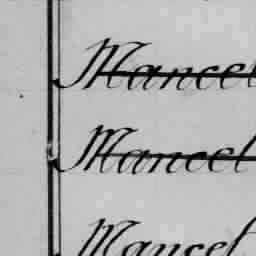 Mancel
Mancel
Mancel